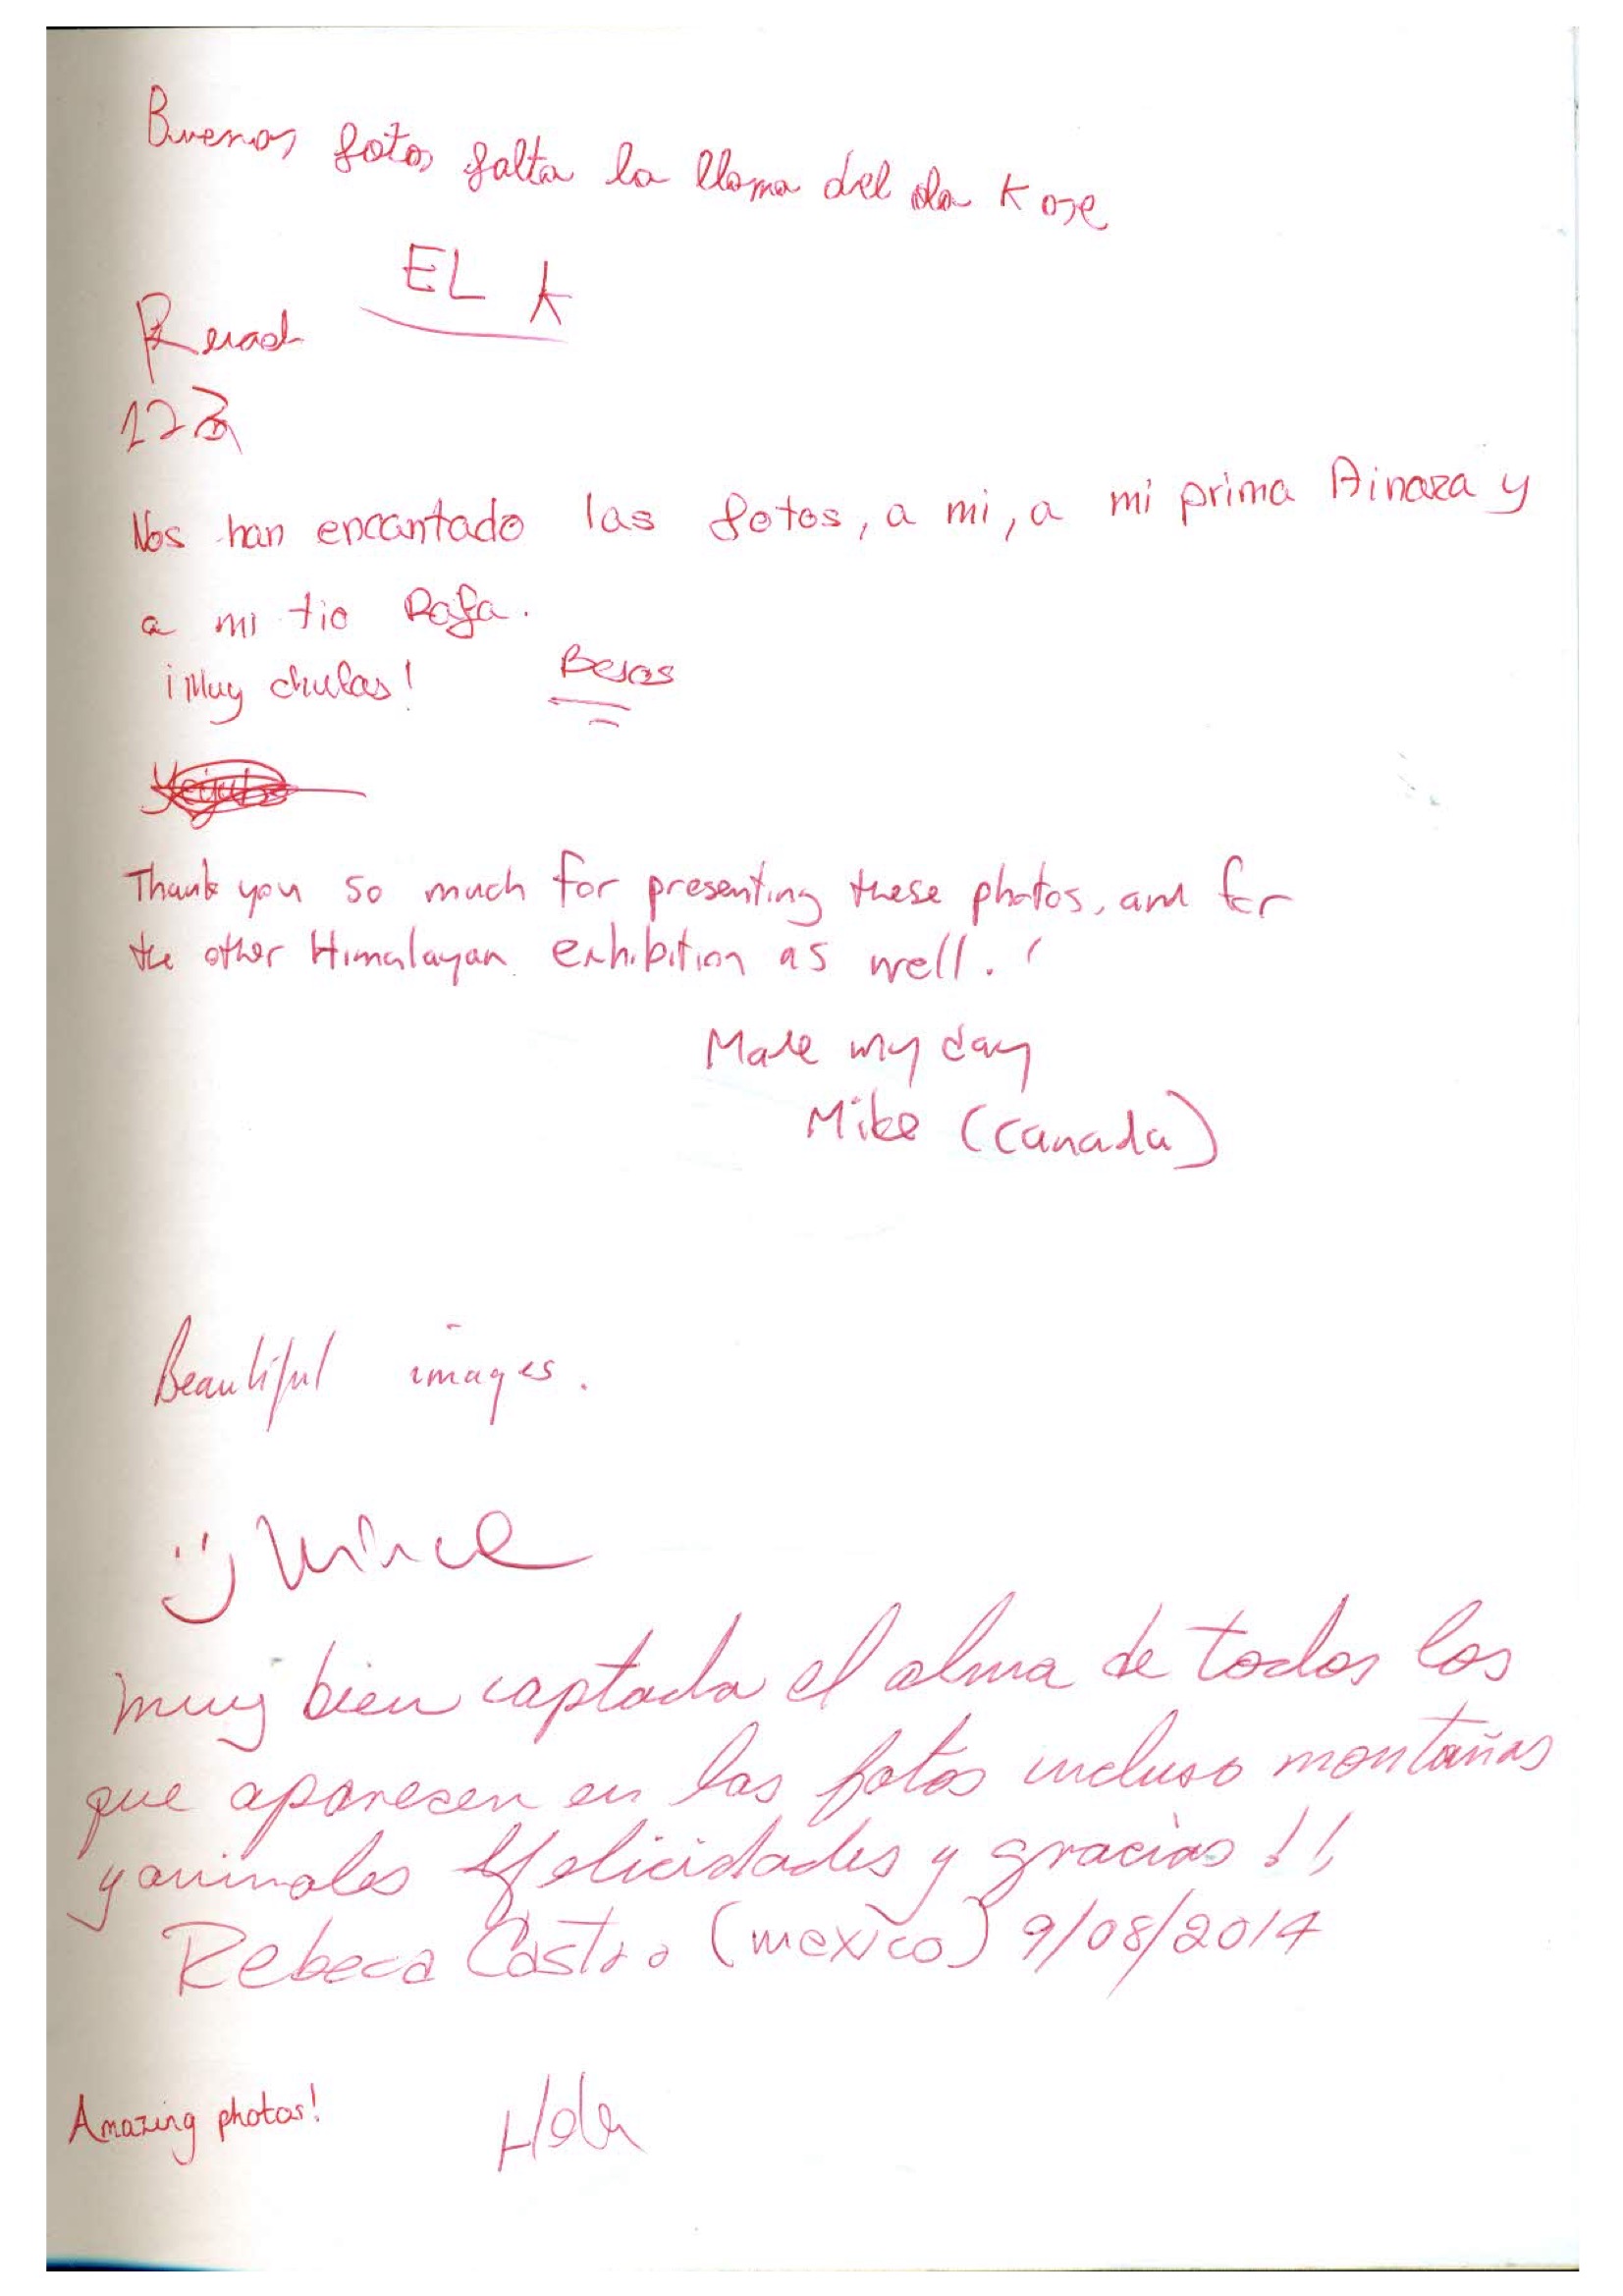 Buenas fotos falta la llama del
EL K
Nos han encantado las fotos, a mi, a mi prima Ainara y
a mi tio Rafa.
¡Muy chulas! Besos
Thank you so much for presenting these photos, and for
the other Himalayan exhibition as well.!
Made my day
Mike (Canada)
Beautiful images.
muy bien captada el alma de todos los
que aparecen en las fotos incluso montañas
y animales felicidades y gracias!!
Rebeca Castro (mexico) 9/08/2014
Amazing photos! Hola